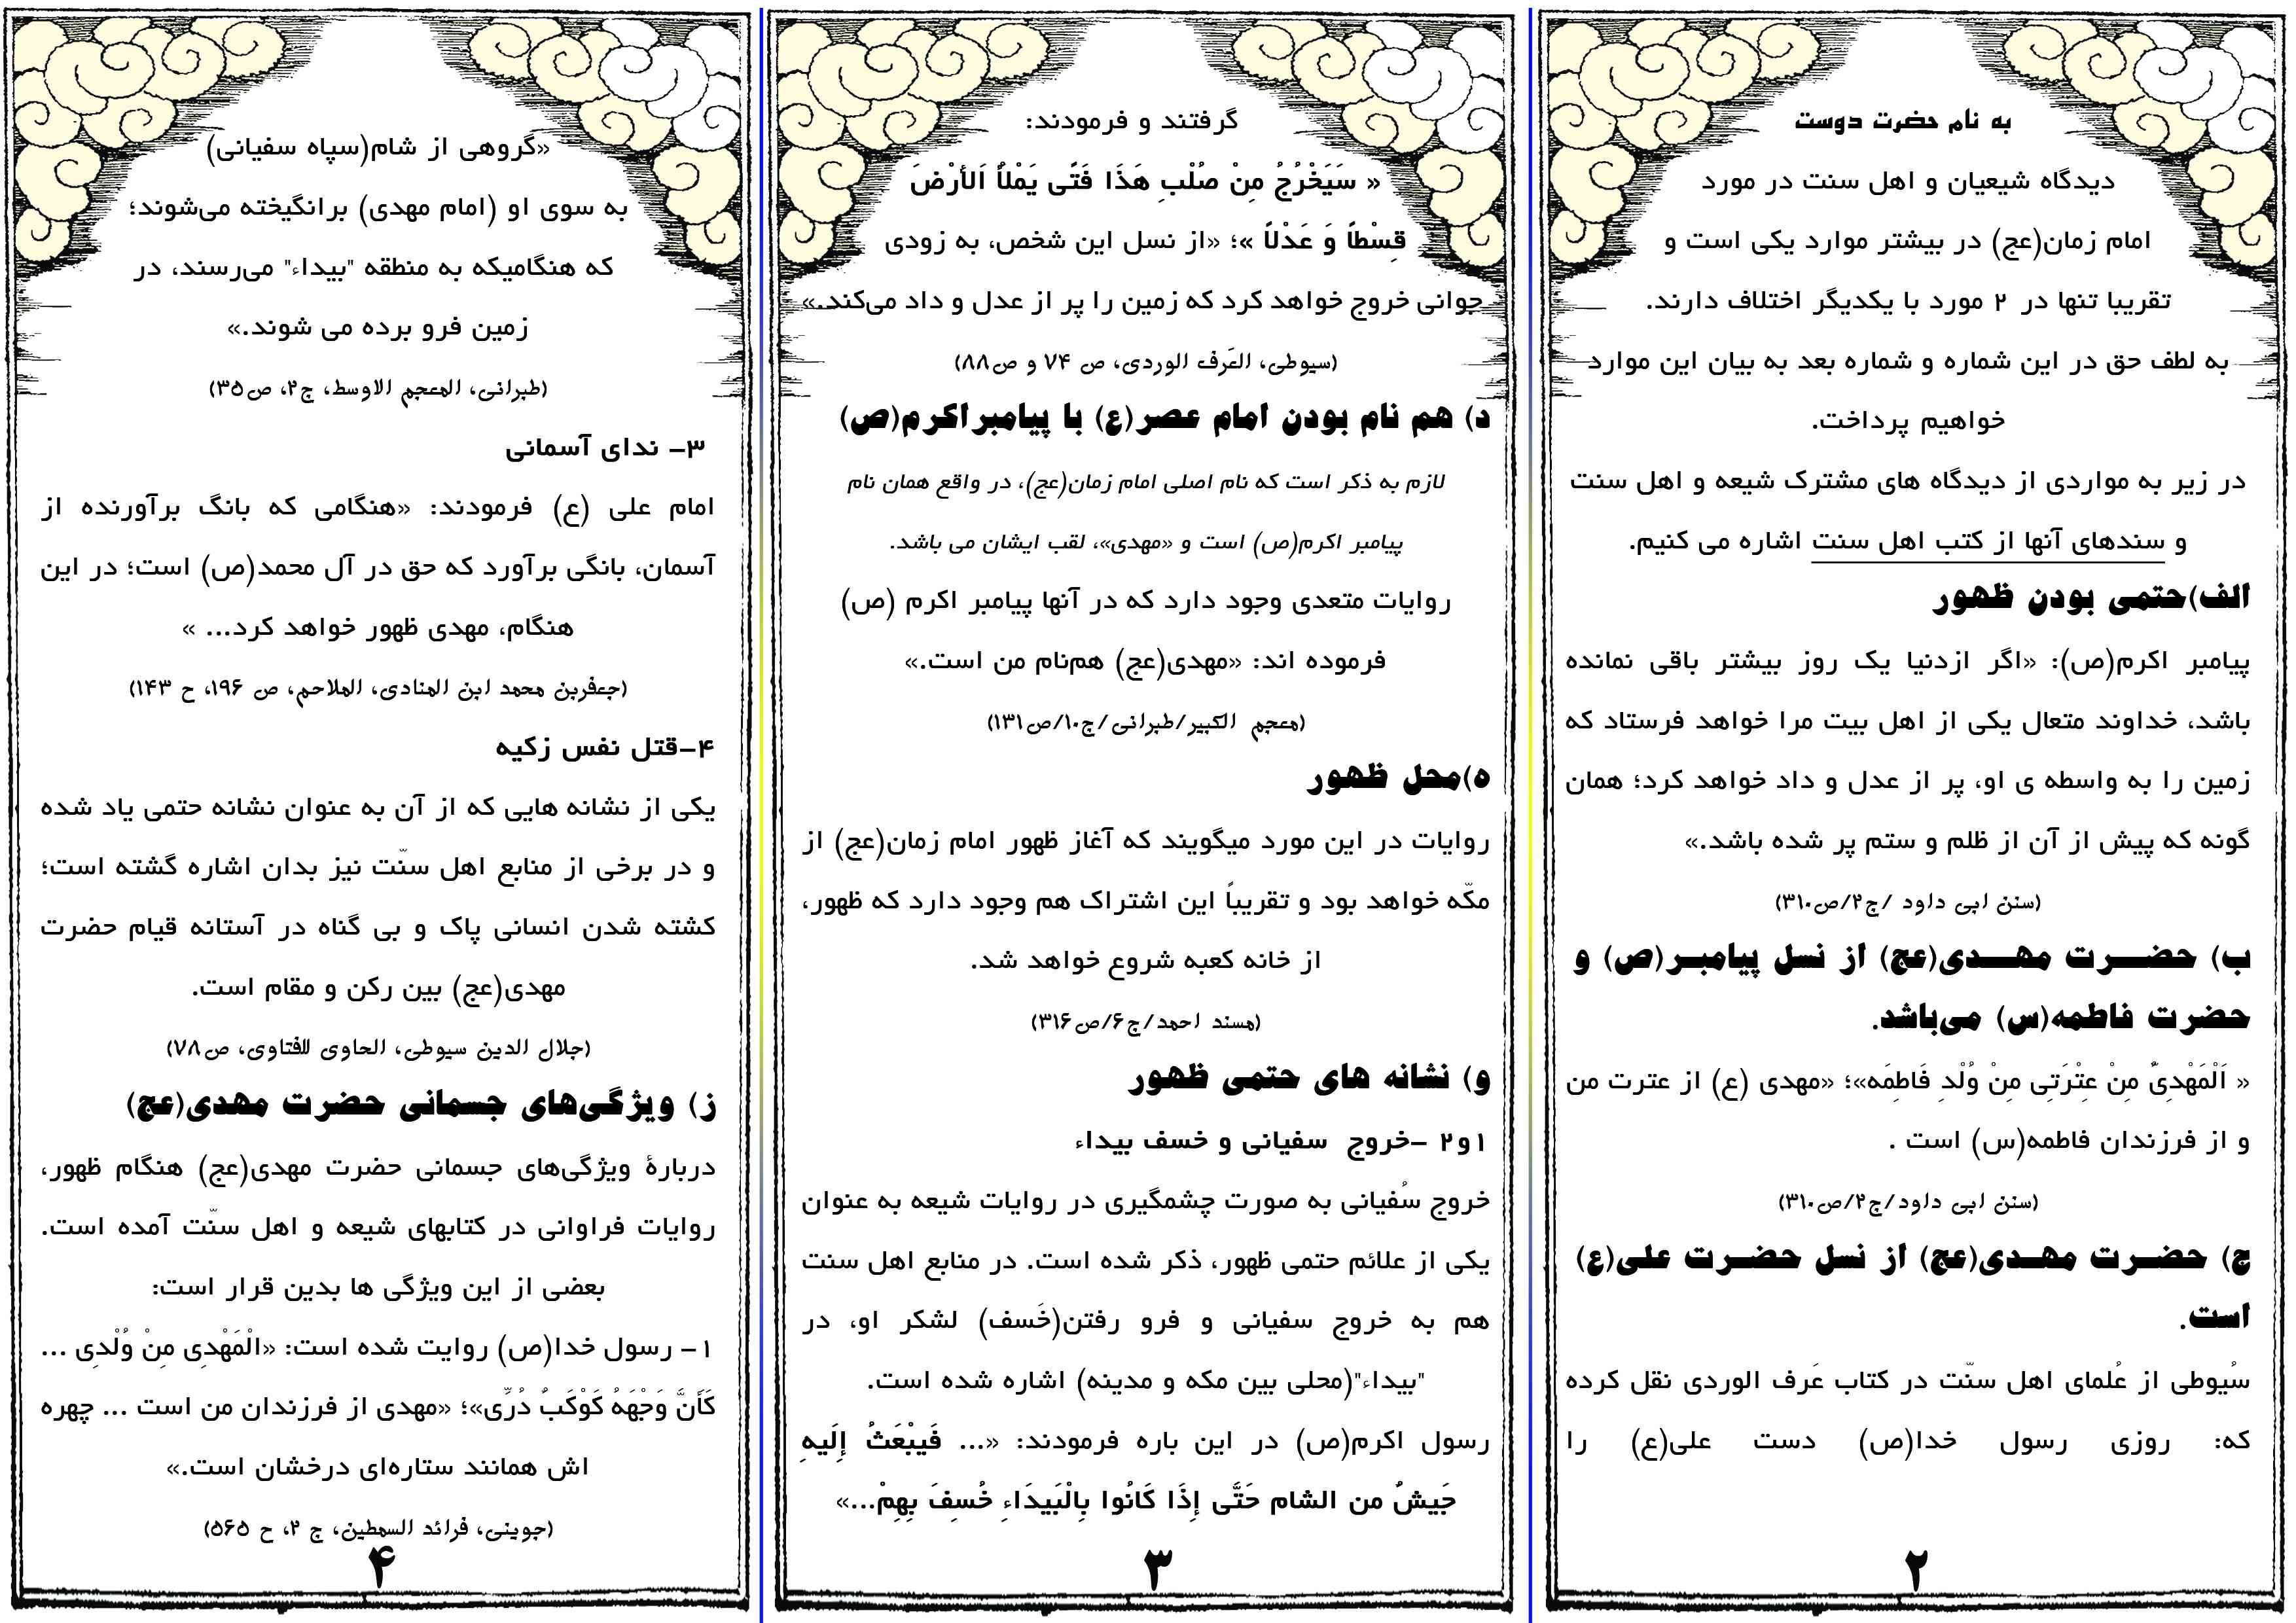 به نام حضرت دوست
دیدگاه شیعیان و اهل سنت در مورد
امام زمان(عج) در بیشتر موارد یکی است و
تقریبا تنها در ۲ مورد با یکدیگر اختلاف دارند.
به لطف حق در این شماره و شماره بعد به بیان این موارد
خواهیم پرداخت.
در زیر به مواردی از دیدگاه های مشترک شیعه و اهل سنت
و سندهای آنها از کتب اهل سنت اشاره می کنیم.
الف)حتمی بودن ظهور
پیامبر اکرم(ص): «اگر ازدنیا یک روز بیشتر باقی نمانده
باشد، خداوند متعال یکی از اهل بیت مرا خواهد فرستاد که
زمین را به واسطه ی او، پر از عدل و داد خواهد کرد؛ همان
گونه که پیش از آن از ظلم و ستم پر شده باشد.»
(سنن ابی داود /ج۲/ص۳۱۰)
ب) حضرت مهدی(عج) از نسل پیامبر(ص) و
حضرت فاطمه(س) می‌باشد.
« اَلْمَهْدِیُّ مِنْ عِتْرَتِی مِنْ وُلْدِ فَاطِمَه»؛ «مهدی (ع) از عترت من
و از فرزندان فاطمه(س) است .
(سنن ابی داود/ج۲/ص۳۱۰)
ج) حضرت مهدی(عج) از نسل حضرت علی(ع)
است.
سُیوطی از عُلمای اهل سنّت در کتاب عَرف الوردی نقل کرده
که: روزی رسول خدا(ص) دست علی(ع) را
۲
گرفتند و فرمودند:
« سَیَخْرُجُ مِنْ صُلْبِ هَذَا فَتًی یَمْلَأُ اَلأرْضَ
قِسْطاً وَ عَدْلاً »؛ «از نسل این شخص، به زودی
جوانی خروج خواهد کرد که زمین را پر از عدل و داد می‌کند.»
(سیوطی، العَرف الوردی، ص ۷۴ و ص۸۸)
د) هم نام بودن امام عصر(ع) با پیامبراکرم(ص)
لازم به ذکر است که نام اصلی امام زمان(عج)، در واقع همان نام
پیامبر اکرم(ص) است و «مهدی»، لقب ایشان می باشد.
روایات متعدی وجود دارد که در آنها پیامبر اکرم (ص)
فرموده اند: «مهدی(عج) هم‌نام من است.»
(معجم الکبیر/طبرانی/ج۱۰/ص۱۳۱)
ه)محل ظهور
روایات در این مورد میگویند که آغاز ظهور امام زمان(عج) از
مکّه خواهد بود و تقریباً این اشتراک هم وجود دارد که ظهور،
از خانه کعبه شروع خواهد شد.
(مسند احمد/ج۶/ص۳۱۶)
و) نشانه های حتمی ظهور
۱و۲ -خروج سفیانی و خسف بیداء
خروج سُفیانی به صورت چشمگیری در روایات شیعه به عنوان
یکی از علائم حتمی ظهور، ذکر شده است. در منابع اهل سنت
هم به خروج سفیانی و فرو رفتن(خَسف) لشکر او، در
"بیداء"(محلی بین مکه و مدینه) اشاره شده است.
رسول اکرم(ص) در این باره فرمودند: «... فَیبْعَثُ إلَیهِ
جَیشٌ من الشام حَتَّی إذَا کَانُوا بِالْبَیدَاءِ خُسِفَ بِهِمْ...»
۳
«گروهی از شام(سپاه سفیانی)
به سوی او (امام مهدی) برانگیخته می‌شوند؛
که هنگامیکه به منطقه "بیداء" می‌رسند، در
زمین فرو برده می شوند.»
(طبرانی، المعجم الاوسط، ج۲، ص۳۵)
۳- ندای آسمانی
امام علی (ع) فرمودند: «هنگامی که بانگ برآورنده از
آسمان، بانگی برآورد که حق در آل محمد(ص) است؛ در این
هنگام، مهدی ظهور خواهد کرد... »
(جعفربن محمد ابن المنادی، الملاحم، ص ۱۹۶، ح ۱۴۳)
۴-قتل نفس زکیه
یکی از نشانه هایی که از آن به عنوان نشانه حتمی یاد شده
و در برخی از منابع اهل سنّت نیز بدان اشاره گشته است؛
کشته شدن انسانی پاک و بی گناه در آستانه قیام حضرت
مهدی(عج) بین رکن و مقام است.
(جلال الدین سیوطی، الحاوی للفتاوی، ص۷۸)
ز) ویژگی‌های جسمانی حضرت مهدی(عج)
دربارهٔ ویژگی‌های جسمانی حضرت مهدی(عج) هنگام ظهور،
روایات فراوانی در کتابهای شیعه و اهل سنّت آمده است.
بعضی از این ویژگی ها بدین قرار است:
۱- رسول خدا(ص) روایت شده است: «الْمَهْدِی مِنْ وُلْدِی ...
کَأنَّ وَجْهَهُ کَوْکَبٌ دُرِّی»؛ «مهدی از فرزندان من است ... چهره
اش همانند ستاره‌ای درخشان است.»
(جوینی، فرائد السمطین، ج ۲، ح ۵۶۵)
۴